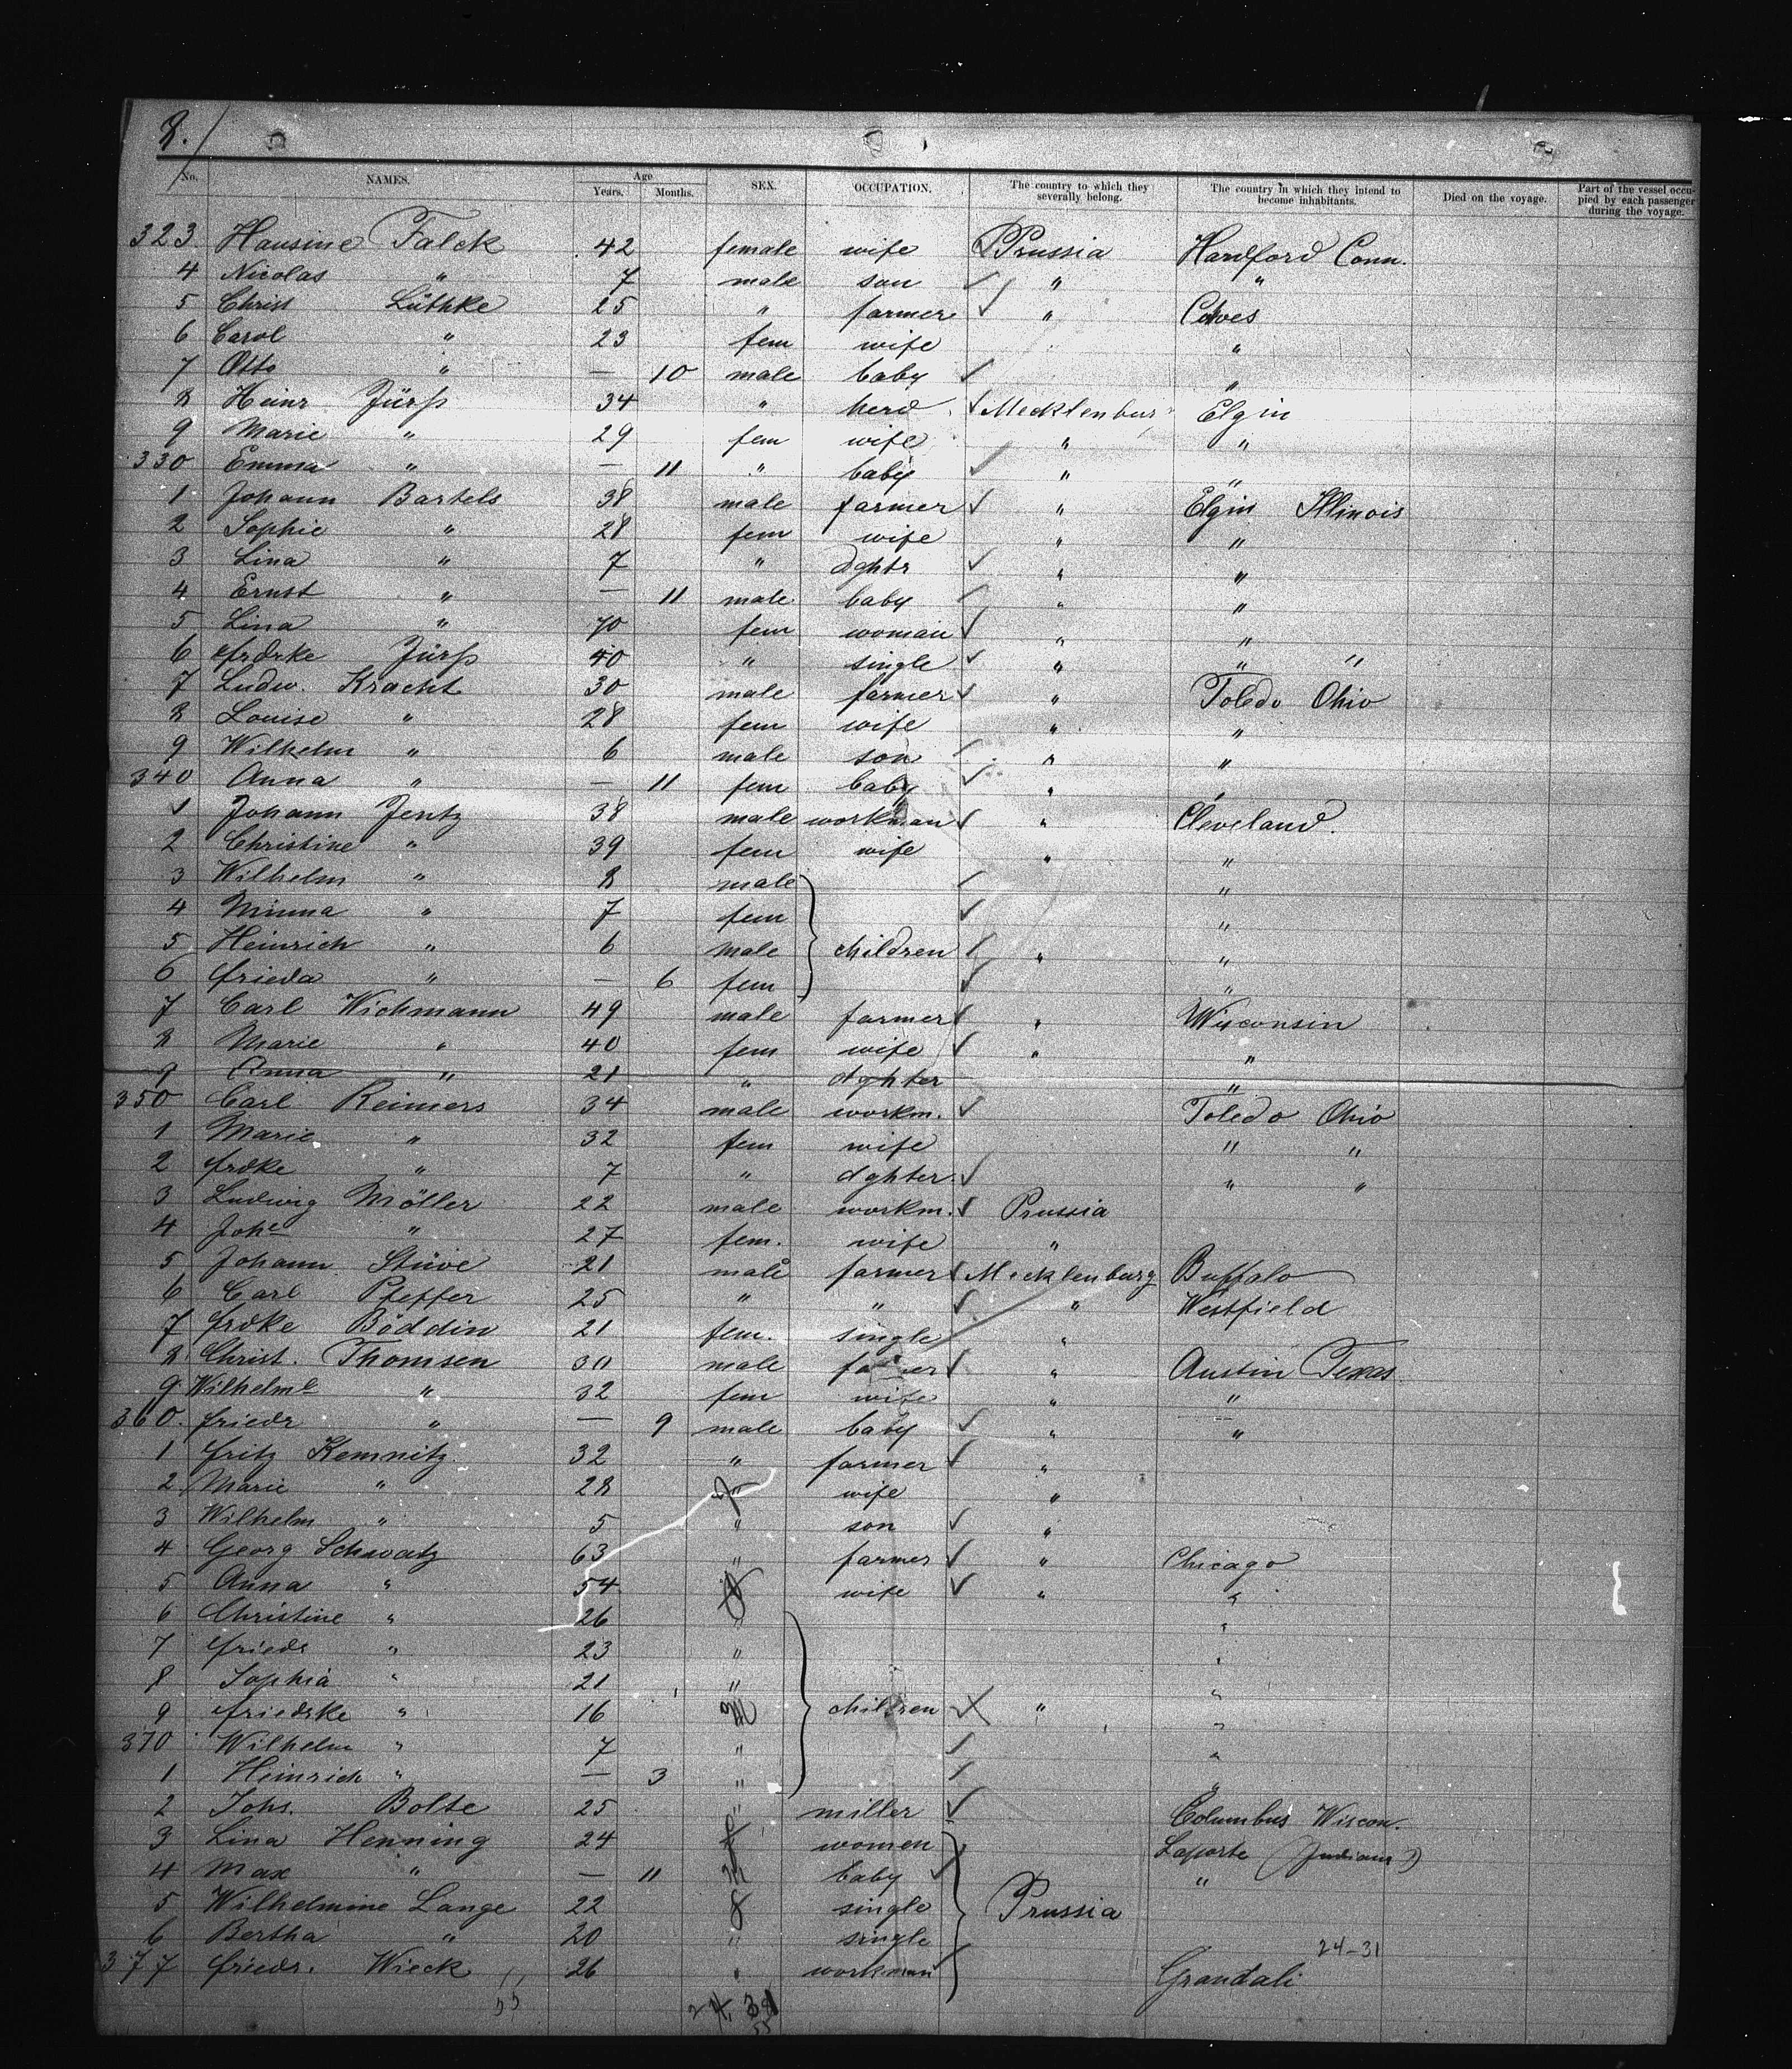 8.
No. NAMES. Age Years. Months. SEX. OCCUPATION. The country to which they severally belong. The country in which they intend to become inhabitants. Died on the voyage. Part of the vessel occupied by each passenger during the voyage.
323 Hansine Falck 42 female wife Prussia Hardford Conn.
4 Nicolas " 7 male son " "
5 Christ Lüthke 25 " farmer "
6 Carol " 23 fem wife "
7 Otto " — 10 male baby "
8 Heinr Jürß 34 " herd Mecklenburg Elgin
9 Marie " 29 fem wife " "
330 Emma " — 11 " baby " "
1 Johann Bartels 38 male farmer " Elgin Illinois
2 Sophie " 28 fem wife " "
3 Lina " 7 " dghtr " "
4 Ernst " — 11 male baby " "
5 Lina " 70 fem woman " "
6 Frdrke Jürß 40 " single " " "
7 Ludw. Kracht 30 male farmer " Toledo Ohio
8 Louise " 28 fem wife " "
9 Wilhelm " 6 male son " "
340 Anna " — 11 fem baby " "
1 Johann Jentz 38 male workman " Cleveland.
2 Christine " 39 fem wife " "
3 Wilhelm " 8 male "
4 Minna " 7 fem "
5 Heinrich " 6 male children " "
6 Frieda " — 6 fem "
7 Carl Wichmann 49 male farmer " Wisconsin
8 Marie " 40 fem wife " "
9 Anna " 21 " dghter "
350 Carl Reimers 34 male workm. Toledo Ohio
1 Marie " 32 fem wife " "
2 Frdke " 7 " dghter " "
3 Ludwig Möller 22 male workm. Prussia
4 Johe " 27 fem. wife "
5 Johann Stüve 21 male farmer Mecklenburg Buffalo
6 Carl Pfeffer 25 " " " Westfield
7 Frdke Böddin 21 fem. single "
8 Christ. Thomsen 30 male farmer " Austin Texas
9 Wilhelme " 32 fem wife " "
360. Friedr " — 9 male baby " "
1 Fritz Kemnitz 32 " farmer "
2 Marie " 28 f wife "
3 Wilhelm " 5 " son "
4 Georg Schwatz 63 " farmer " Chicago
5 Anna " 54 wife " "
6 Christine " 26 " "
7 Friedr " 23 " "
8 Sophia " 21 " "
9 Friedrke " 16 M children " "
370 Wilhelm " 7 " "
1 Heinrich " — 3 " "
2 Johs. Bolte 25 " miller Columbus Wiscon.
3 Lina Henning 24 f women Laporte (Indiana?)
4 Max " — 11 baby "
5 Wilhelmine Lange 22 f single Prussia
6 Bertha " 20 " single
24-31
377 Friedr. Wieck 26 " workman Grandali
55 24, 31
55